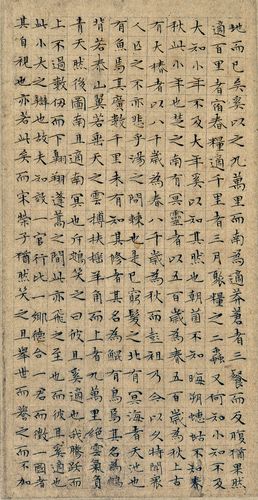 地而已矣奚以之九萬里而南為適莽蒼者三餐而反腹猶果然
適百里者宿舂糧適千里者三月聚糧之二蟲又何知小知不及
大知小年不及大年奚以知其然也朝菌不知晦朔蟪蛄不知春
秋此小年也楚之南有冥靈者以五百歲為春五百歲為秋上古
有大椿者以八千歲為春八千歲為秋而彭祖乃今以久特聞眾
人匹之不亦悲乎湯之問棘也是已窮髮之北有冥海者天池也
有魚焉其廣數千里未有知其修者其名為鯤有鳥焉其名為鵬
背若泰山翼若垂天之雲摶扶搖羊角而上者九萬里絕雲氣負
青天然後圖南且適南冥也斥鴳笑之曰彼且奚適也我騰躍而
上不過數仞而下翱翔蓬蒿之間此亦飛之至也而彼且奚適也
此小大之辯也故夫知效一官行比一鄉德合一君而徵一國者
其自視也亦若此矣而宋榮子猶然笑之且舉世而譽之而不加